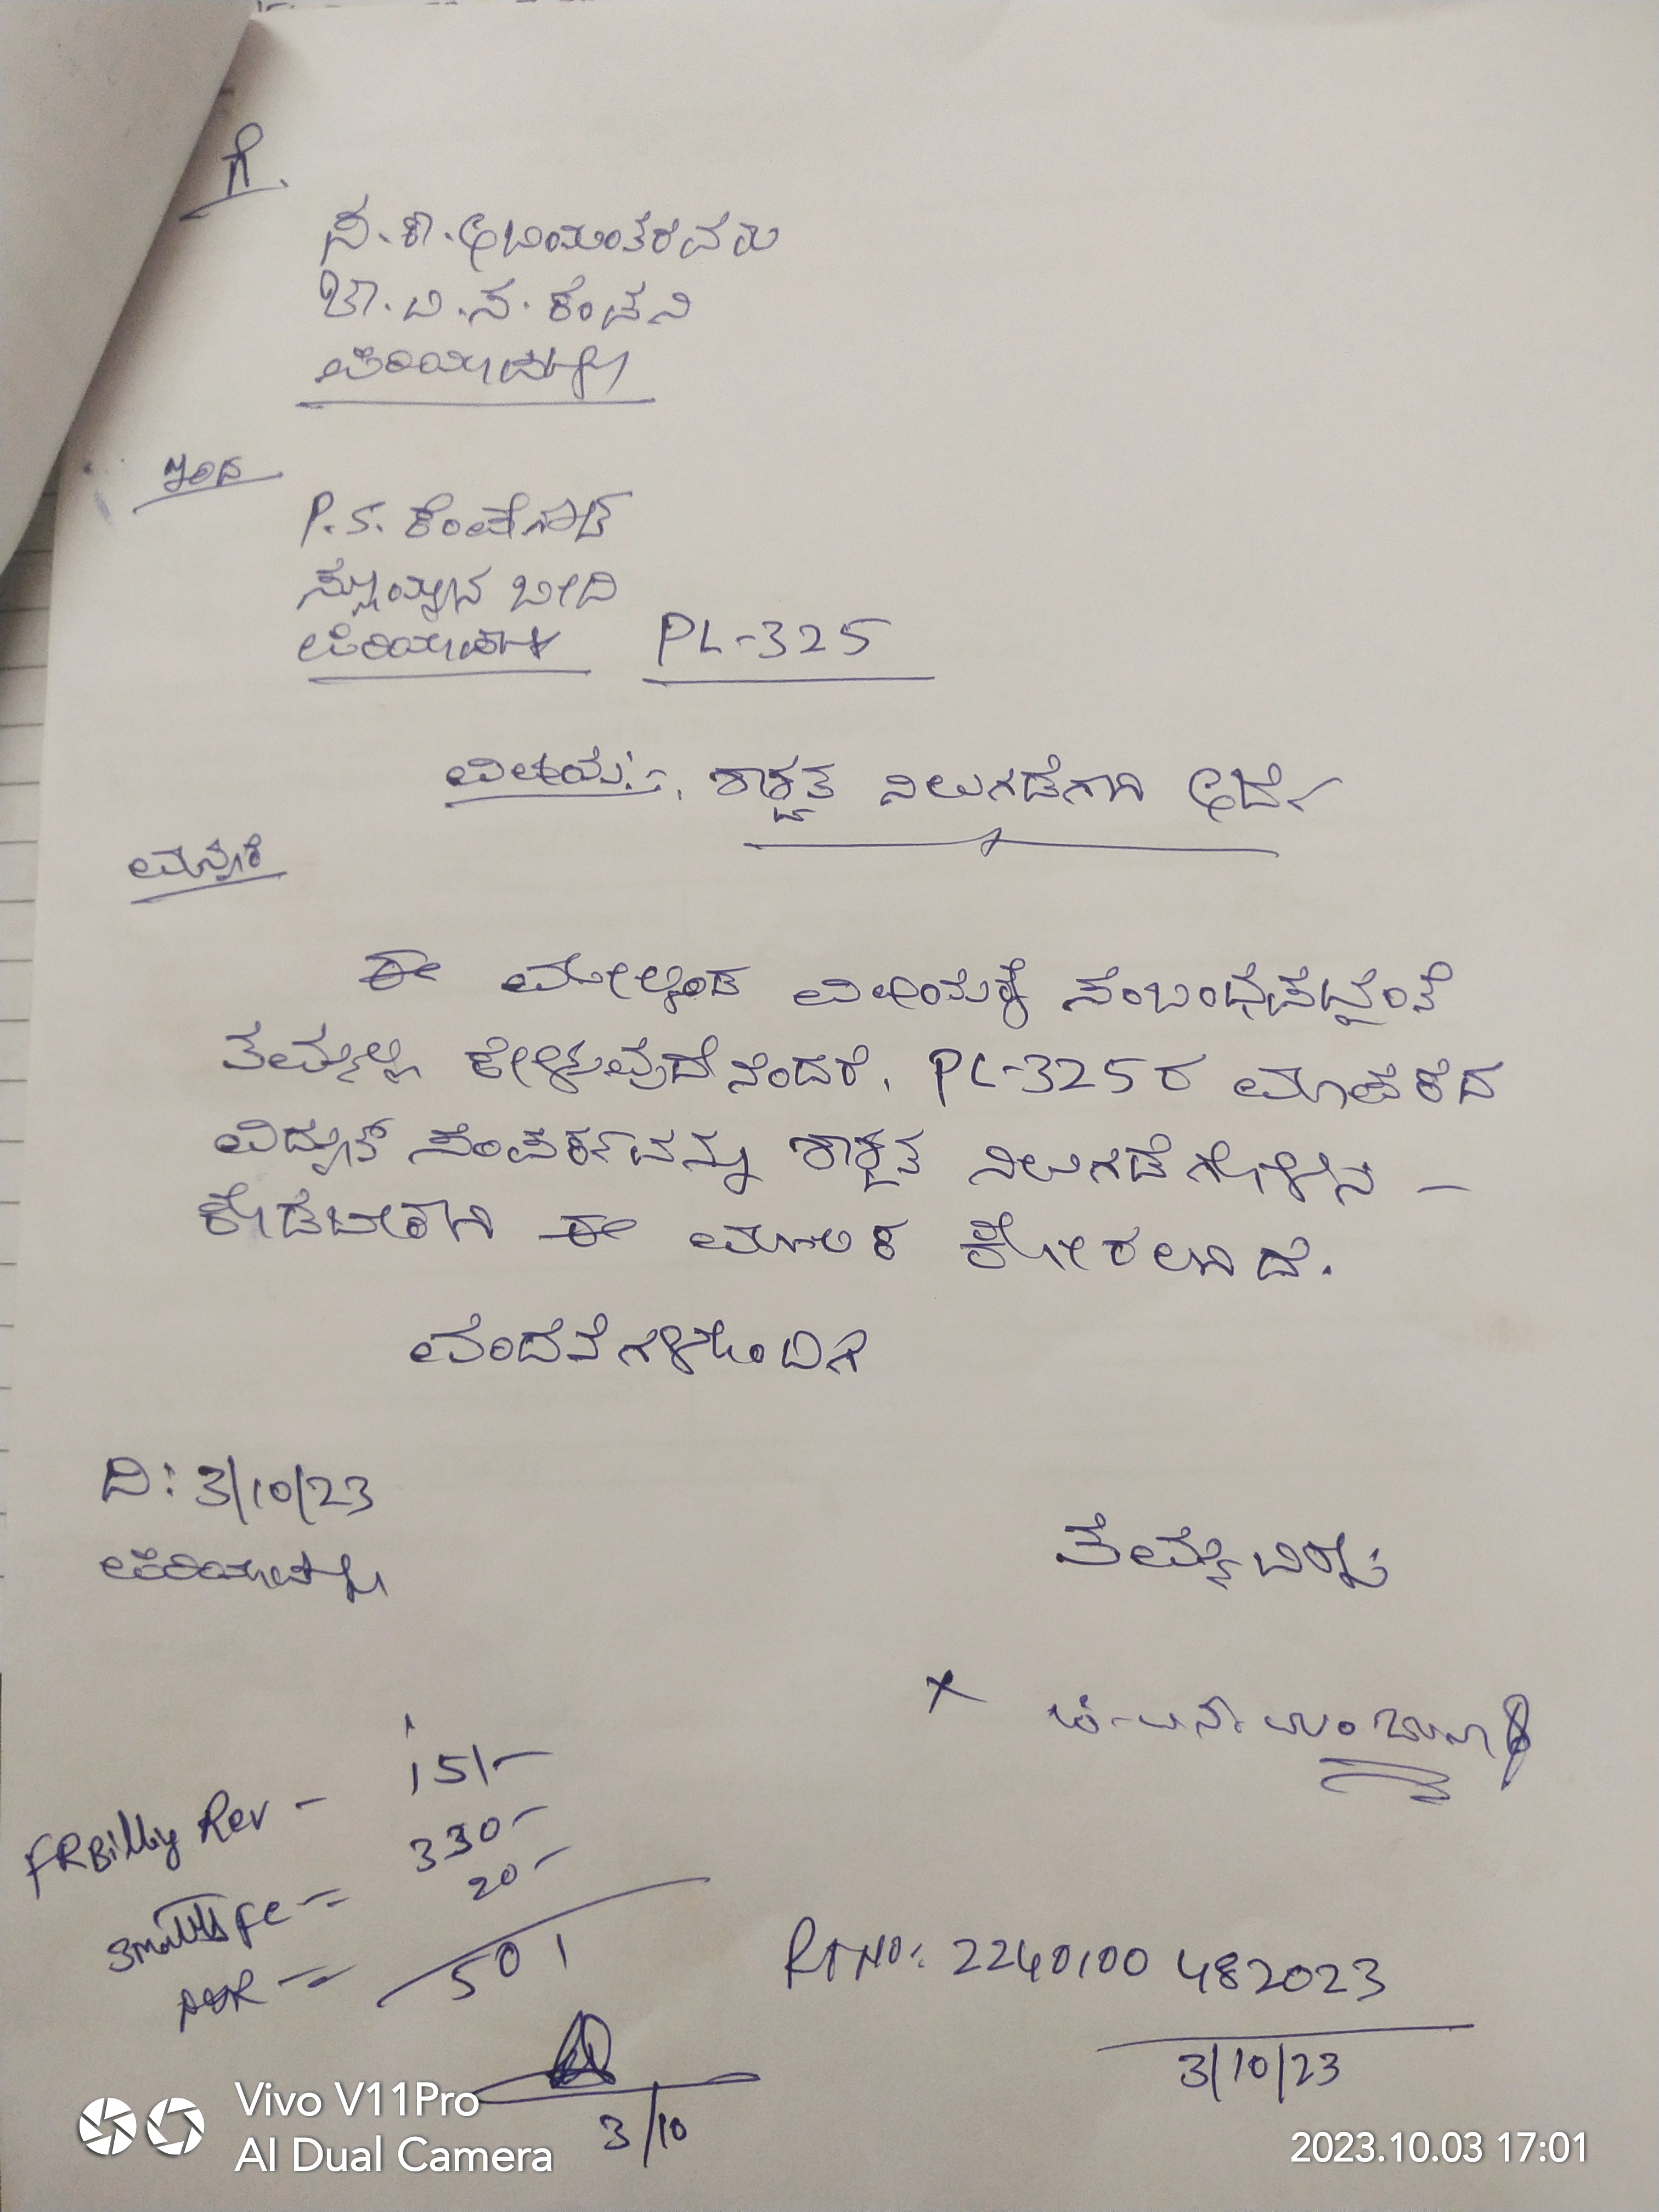 ಗೆ.
ಸ. ಕಾ. ಅಭಿಯಂತರವರು
ಚಾ. ವಿ. ಸ. ಕಂಪನಿ
ಪಿರಿಯಾಪಟ್ಟಣ
ಇಂದ
P.S. ಕೆಂಪೇಗೌಡ
ಬೀದಿ
ಪಿರಿಯಾಪಟ್ಟಣ PL-325
ವಿಷಯ:- ಶಾಶ್ವತ ನಿಲುಗಡೆಗಾಗಿ ಅರ್ಜಿ
ಮಾನ್ಯರೆ
ಈ ಮೇಲ್ಕಂಡ ವಿಷಯಕ್ಕೆ ಸಂಬಂಧಪಟ್ಟಂತೆ
ತಮ್ಮಲ್ಲಿ ಕೇಳುವುದೇನೆಂದರೆ, PL-325ರ ಮಾಪಕದ
ವಿದ್ಯುತ್ ಸಂಪರ್ಕವನ್ನು ಶಾಶ್ವತ ನಿಲುಗಡೆಗೊಳಿಸಿ -
ಕೊಡಬೇಕಾಗಿ ಈ ಮೂಲಕ ಕೋರಲಾಗಿದೆ.
ವಂದನೆಗಳೊಂದಿಗೆ
ದಿ: 3/10/23
ಪಿರಿಯಾಪಟ್ಟಣ
ತಮ್ಮ ವಿಶ್ವಾಸಿ
x
FR Billing Rev - 151/-
3 months FC = 330-
= 20-
501
Rt No: 2240100 482023
3/10/23
3/10
Vivo V11Pro
AI Dual Camera
2023.10.03 17:01